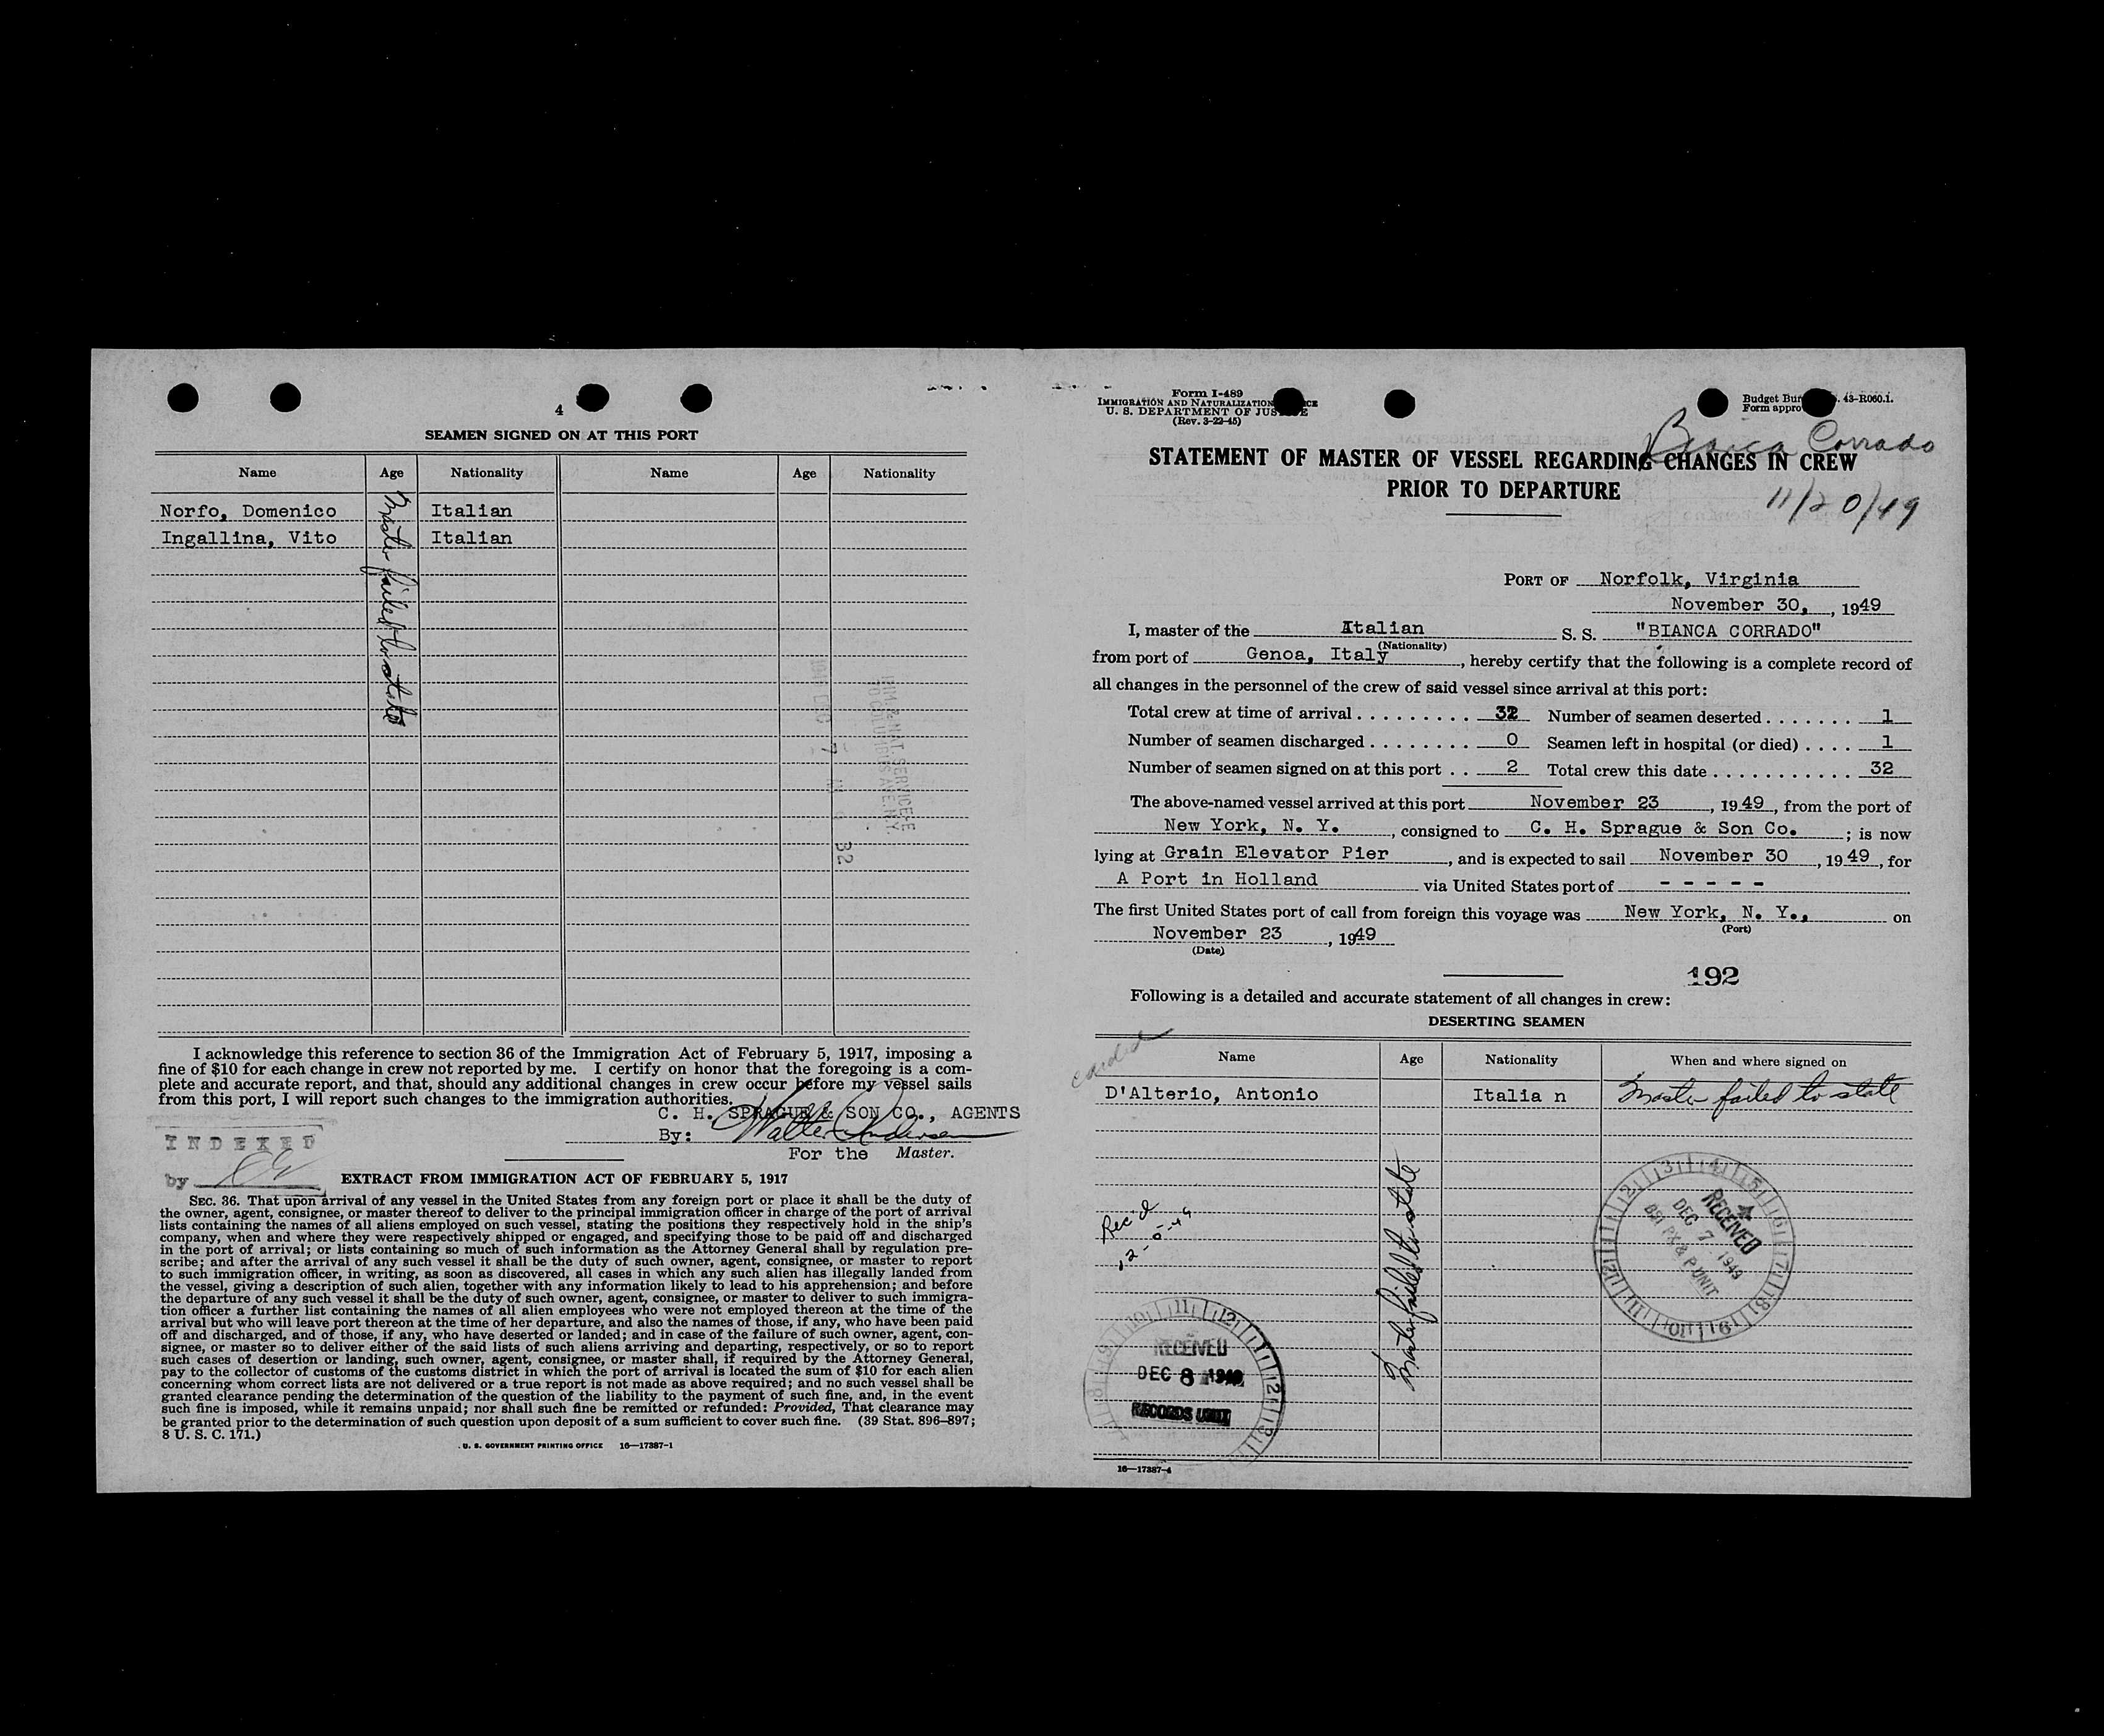 4
SEAMEN SIGNED ON AT THIS PORT
Name Age Nationality Name Age Nationality
Norfo, Domenico Italian
Ingallina, Vito Italian
Master failed to state
IMM & NAT. SERVICE
70 COLUMBUS AVE. N.Y.
I acknowledge this reference to section 36 of the Immigration Act of February 5, 1917, imposing a
fine of $10 for each change in crew not reported by me. I certify on honor that the foregoing is a com-
plete and accurate report, and that, should any additional changes in crew occur before my vessel sails
from this port, I will report such changes to the immigration authorities.
C. H. SPRAGUE & SON CO., AGENTS
By: Walter Andersen
For the Master.
INDEXED
by
EXTRACT FROM IMMIGRATION ACT OF FEBRUARY 5, 1917
SEC. 36. That upon arrival of any vessel in the United States from any foreign port or place it shall be the duty of
the owner, agent, consignee, or master thereof to deliver to the principal immigration officer in charge of the port of arrival
lists containing the names of all aliens employed on such vessel, stating the positions they respectively hold in the ship's
company, when and where they were respectively shipped or engaged, and specifying those to be paid off and discharged
in the port of arrival; or lists containing so much of such information as the Attorney General shall by regulation pre-
scribe; and after the arrival of any such vessel it shall be the duty of such owner, agent, consignee, or master to report
to such immigration officer, in writing, as soon as discovered, all cases in which any such alien has illegally landed from
the vessel, giving a description of such alien, together with any information likely to lead to his apprehension; and before
the departure of any such vessel it shall be the duty of such owner, agent, consignee, or master to deliver to such immigra-
tion officer a further list containing the names of all alien employees who were not employed thereon at the time of the
arrival but who will leave port thereon at the time of her departure, and also the names of those, if any, who have been paid
off and discharged, and of those, if any, who have deserted or landed; and in case of the failure of such owner, agent, con-
signee, or master so to deliver either of the said lists of such aliens arriving and departing, respectively, or so to report
such cases of desertion or landing, such owner, agent, consignee, or master shall, if required by the Attorney General,
pay to the collector of customs of the customs district in which the port of arrival is located the sum of $10 for each alien
concerning whom correct lists are not delivered or a true report is not made as above required; and no such vessel shall be
granted clearance pending the determination of the question of the liability to the payment of such fine, and, in the event
such fine is imposed, while it remains unpaid; nor shall such fine be remitted or refunded: Provided, That clearance may
be granted prior to the determination of such question upon deposit of a sum sufficient to cover such fine. (39 Stat. 896–897;
8 U. S. C. 171.)
U. S. GOVERNMENT PRINTING OFFICE 16—17387-1
Form I-489
IMMIGRATION AND NATURALIZATION
U. S. DEPARTMENT OF JUSTICE
(Rev. 3-22-45)
Budget Bur . 43-R060.1.
Form appro
Bianca Corrado
11/20/49
STATEMENT OF MASTER OF VESSEL REGARDING CHANGES IN CREW
PRIOR TO DEPARTURE
PORT OF Norfolk, Virginia
November 30, , 1949
I, master of the Italian S. S. "BIANCA CORRADO"
(Nationality)
from port of Genoa, Italy, hereby certify that the following is a complete record of
all changes in the personnel of the crew of said vessel since arrival at this port:
Total crew at time of arrival . . . . . . . . . 32 Number of seamen deserted . . . . . . . 1
Number of seamen discharged . . . . . . . . 0 Seamen left in hospital (or died) . . . . 1
Number of seamen signed on at this port . . 2 Total crew this date . . . . . . . . . . . 32
The above-named vessel arrived at this port November 23, 1949, from the port of
New York, N. Y., consigned to C. H. Sprague & Son Co. ; is now
lying at Grain Elevator Pier, and is expected to sail November 30, 1949, for
A Port in Holland via United States port of - - - - -
The first United States port of call from foreign this voyage was New York, N. Y., on
(Port)
November 23, 1949
(Date)
192
Following is a detailed and accurate statement of all changes in crew:
DESERTING SEAMEN
carded
Name Age Nationality When and where signed on
D'Alterio, Antonio Italia n Master failed to state
Master failed to state
Rec'd
12-5-49
RECEIVED
DEC 7 1949
RECEIVED
DEC 8 1949
RECORDS UNIT
16—17387-4